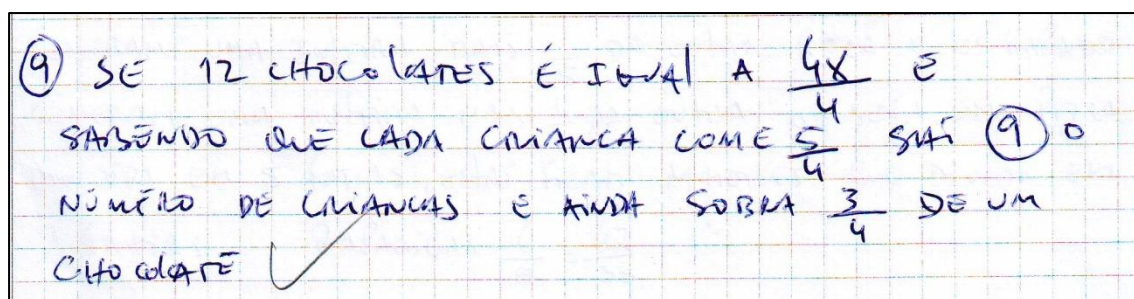 ⑨ SE 12 CHOCOLATES É IGUAL A 48/4 E
SABENDO QUE CADA CRIANCA COME 5/4 SAI ⑨ O
NÚMERO DE CRIANCAS E AINDA SOBRA 3/4 DE UM
CHOCOLATE